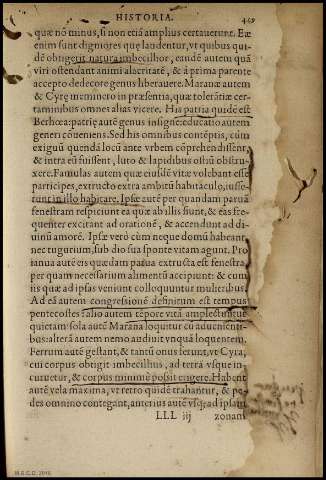 HISTORIA.
quæ nō minus, si non etiā amplius certauerunt. Eæ
enim sunt digniores quę laudentur, vt quibus qui-
dē obtigerit natura imbecillior, eandē autem quā
viri ostendant animi alacritatē, & à prima parente
accepto dedecore genus liberauere. Maranæ autem
& Cyrę meminero in præsentia, quæ tolerātiæ cer-
taminibus omnes alias vicere. His patria quidē est
Berhœa: patrię autē genus insigne: educatio autem
generi cōueniens. Sed his omnibus contēptis, cùm
exiguū quendā locū ante vrbem cōprehendissent,
& intra eū fuissent, luto & lapidibus ostiū obstru-
xere. Famulas autem quæ eiusdē vitæ volebant esse
participes, extructo extra ambitū habitaculo, iusse-
runt in illo habitare. Ipsæ autē per quandam paruā
fenestram respiciunt ea quæ ab illis fiunt, & eas fre-
quenter excitant ad orationē, & accendunt ad di-
uinū amorē. Ipsæ verò cùm neque domū habeant,
nec tugurium, sub dio sua sponte vitam agunt. Pro
ianua autē eis quædam parua extructa est fenestra
per quam necessarium alimentū accipiunt: & cum
iis quæ ad ipsas veniunt colloquuntur mulieribus.
Ad eā autem congressionē definitum est tempus
pentecostes: alio autem tēpore vitā amplectuntur
quietam: sola autē Marana loquitur cū aduenienti-
bus: alterā autem nemo audiuit vnquā loquentem.
Ferrum autē gestant, & tantū onus ferunt, vt Cyra,
cui corpus obtigit imbecillius, ad terrā vsque in-
curuetur, & corpus minimè possit erigere. Habent
autē vela maxima, vt retro quidē trahantur, & pe-
des omnino contegant, anterius autē vsq; ad ipsam
LLL iij zonam
M.E.C.D. 2016